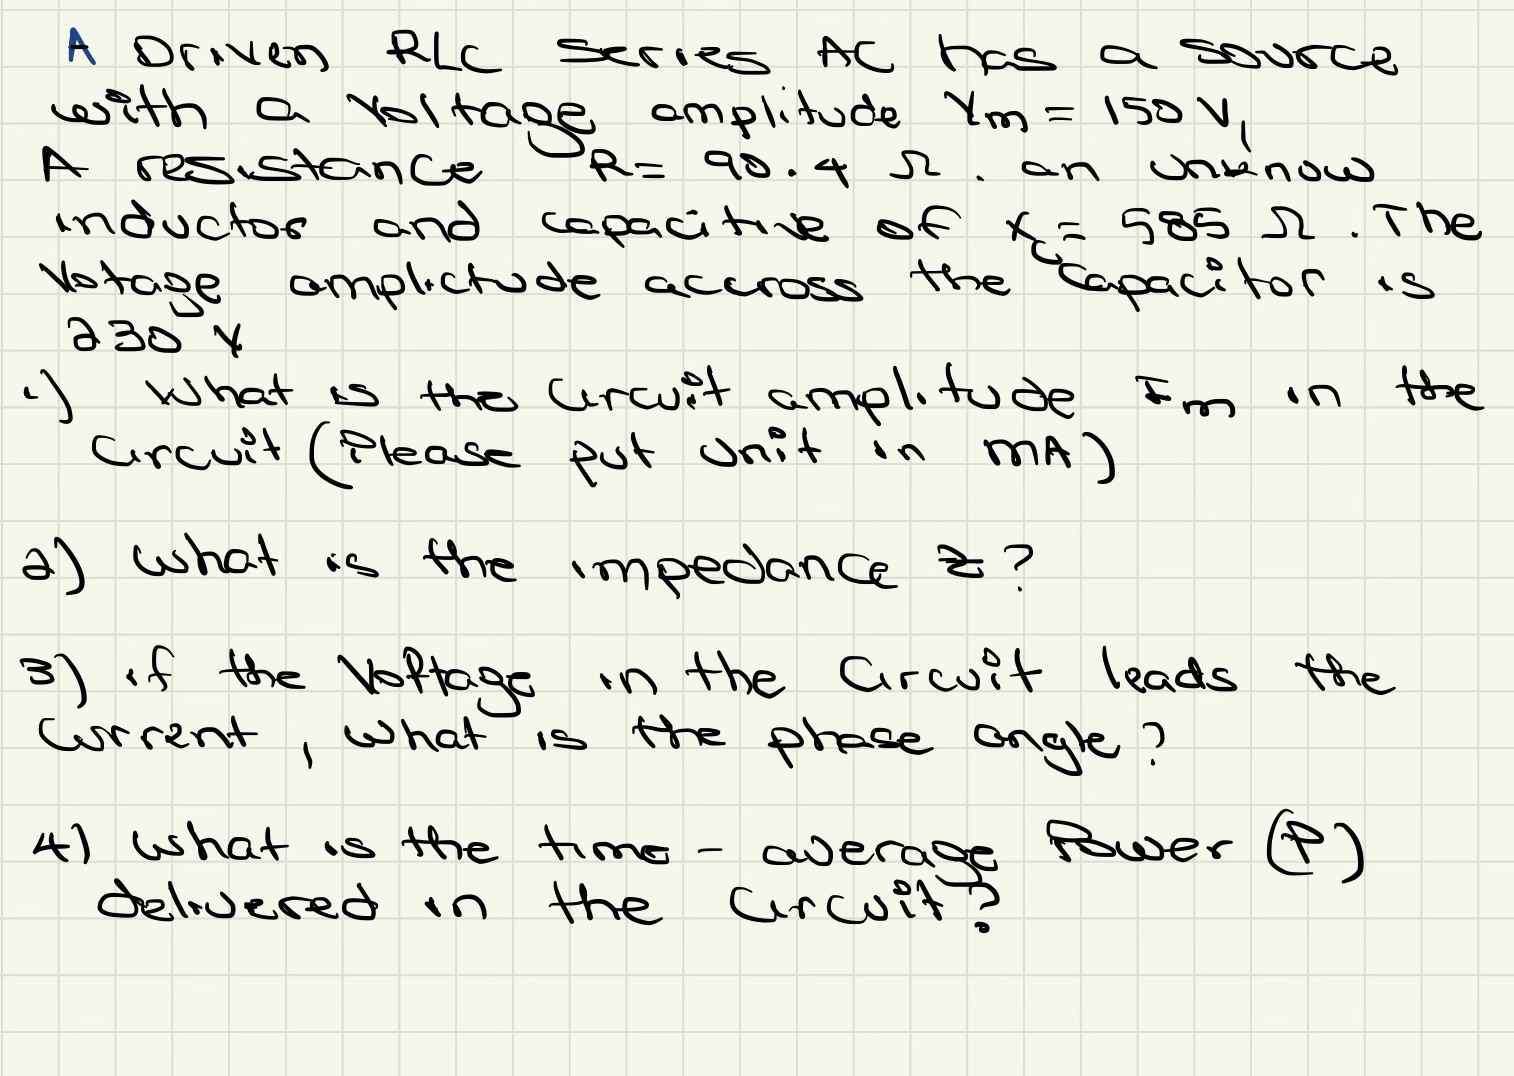 A Driven RLC series AC has a source
with a Voltage amplitude Vm = 150 V,
A resistance R = 90.4 Ω. an unknow
inductor and capacitive of Xc = 585 Ω. The
Votage amplictude accross the capacitor is
230 V
1) What is the Circuit amplitude Im in the
Circuit (Please put unit in mA)
2) what is the impedance Z?
3) if the Voltage in the Circuit leads the
Current, what is the phase angle?
4) what is the time - average Power (P)
delivered in the Circuit?